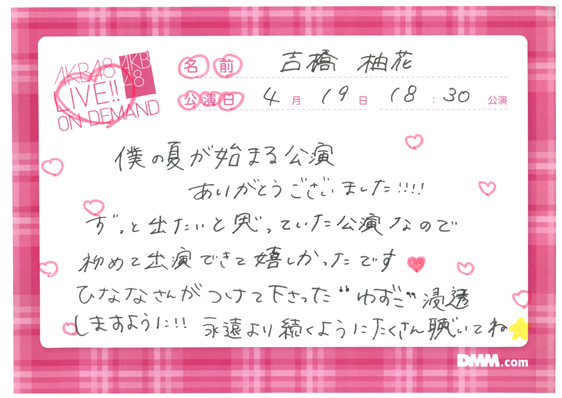 AKB48
LIVE!!
ON DEMAND
AKB
48
名前 吉橋 柚花
公演日 4月19日 18:30公演
僕の夏が始まる公演
ありがとうございました!!!!
ずっと出たいと思っていた公演なので
初めて出演できて嬉しかったです
ひななさんがつけて下さった"ゆずご"浸透
しますように!! 永遠より続くようにたくさん聴いてね
DMM.com